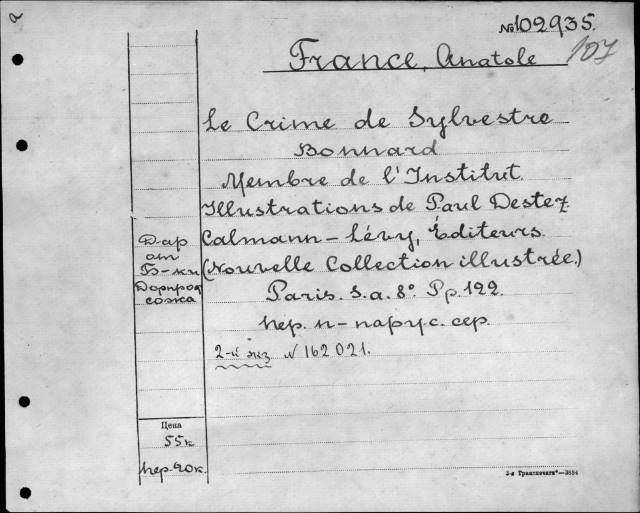 №102935.
107
France, Anatole
Le Crime de Sylvestre
Bonnard
Membre de l'Institut.
Illustrations de Paul Destez
Calmann-Lévy, Éditeurs.
(Nouvelle Collection illustrée.)
Paris. S.a. 8° Pp. 122.
пер. п-парус. сер.
2-й экз N 162021.
Дар
от
Б-ки
Дорпроф
сожа
Цена
55к
пер. 20к.
3884